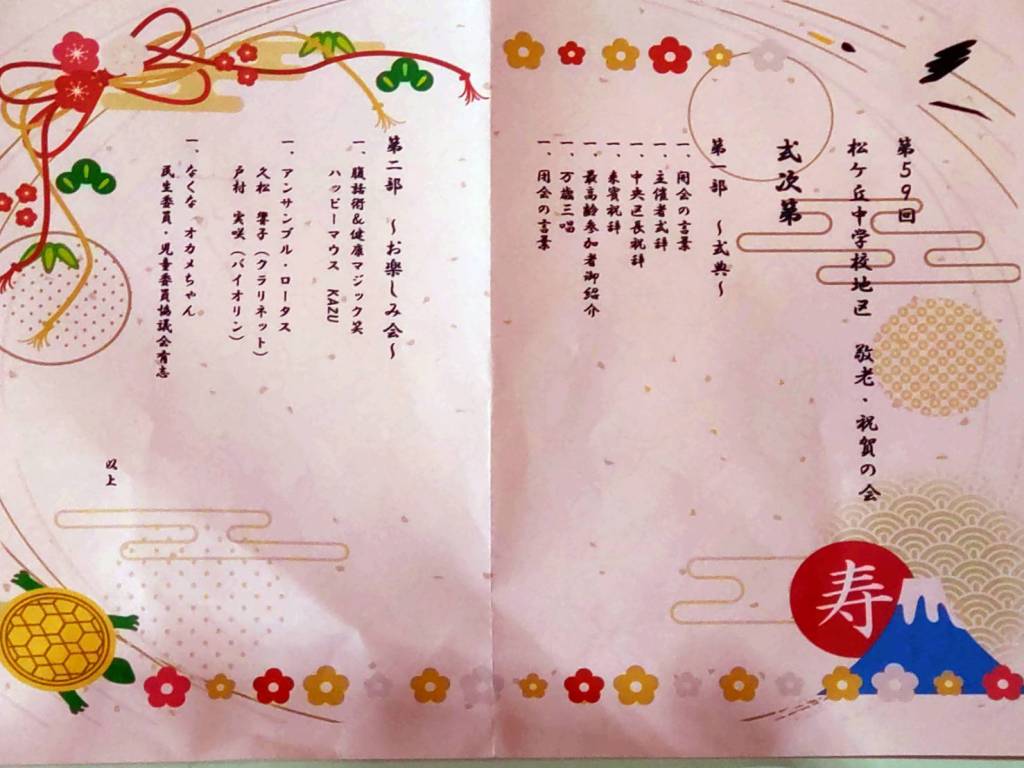 第59回
松ケ丘中学校地区　敬老・祝賀の会
式次第
第一部　～式典～
一、開会の言葉
一、主催者式辞
一、中央区長祝辞
一、来賓祝辞
一、最高齢参加者御紹介
一、万歳三唱
一、閉会の言葉
寿
第二部　～お楽しみ会～
一、腹話術&健康マジック笑
ハッピーマウス　KAZU
一、アンサンブル・ロータス
久松　響子（クラリネット）
戸村　実咲（バイオリン）
一、なくな　オカメちゃん
民生委員・児童委員協議会有志
以上